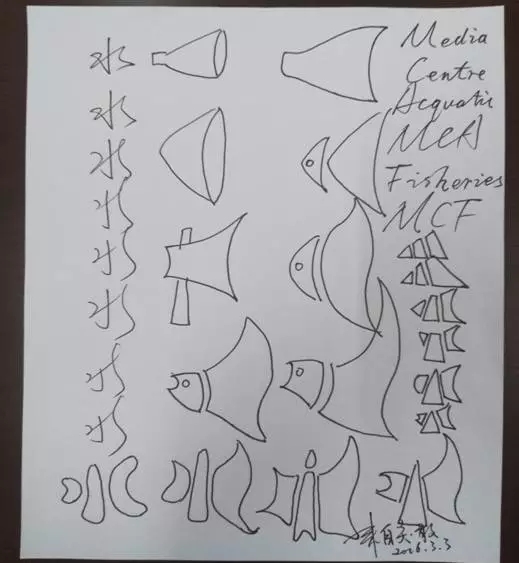 水
水
水
水
水
水
水
水
Media
Centre
Acquatic
MCA
Fisheries
MCF
2026.3.3